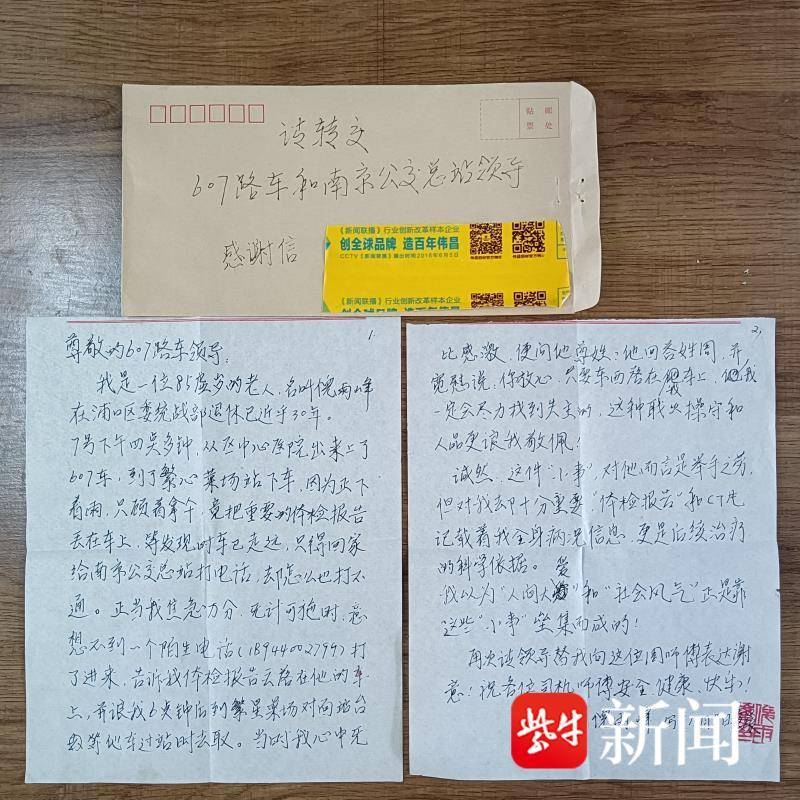 贴 邮
票 处
请转交
607路车和南京公交总站领导
感谢信
《新闻联播》行业创新改革样本企业
创全球品牌 造百年伟昌
CCTV《新闻联播》播出时间2016年6月5日
《新闻联播》行业创新改革样本企业
创全球品牌 造百年伟昌
1.
尊敬的607路车领导:
我是一位85虚岁的老人,名叫倪雨峰
在浦口区委统战部退休已近乎30年。
7号下午四点多钟,从区中心医院出来上了
607车,到了繁心菜场站下车,因为正下
着雨,只顾着拿伞,竟把重要的体检报告
丢在车上,等发现时车已走远,只得回家
给南京公交总站打电话,却怎么也打不
通。正当我焦急万分,无计可施时,意
想不到一个陌生电话(18944002799)打
了进来,告诉我体检报告丢落在他的车
上,并让我6点钟后到繁星菜场对面站台
处等他车过站时去取。当时我心中无
2,
比感激,便问他尊姓,他回答姓周,并
宽慰说:你放心,只要东西落在我车上,我
一定会尽力找到失主的,这种职业操守和
人品更让我敬佩!
诚然,这件"小事",对他而言是举手之劳,
但对我却十分重要,"体检报告"和CT片
记载着我全身病况信息,更是后续治疗
的科学依据。
我以为"人间大爱"和"社会风气"正是靠
这些"小事"坠集而成的!
再次请领导替我向这位周师傅表达谢
意!祝各位司机师傅安全、健康、快乐!
紫牛 新闻